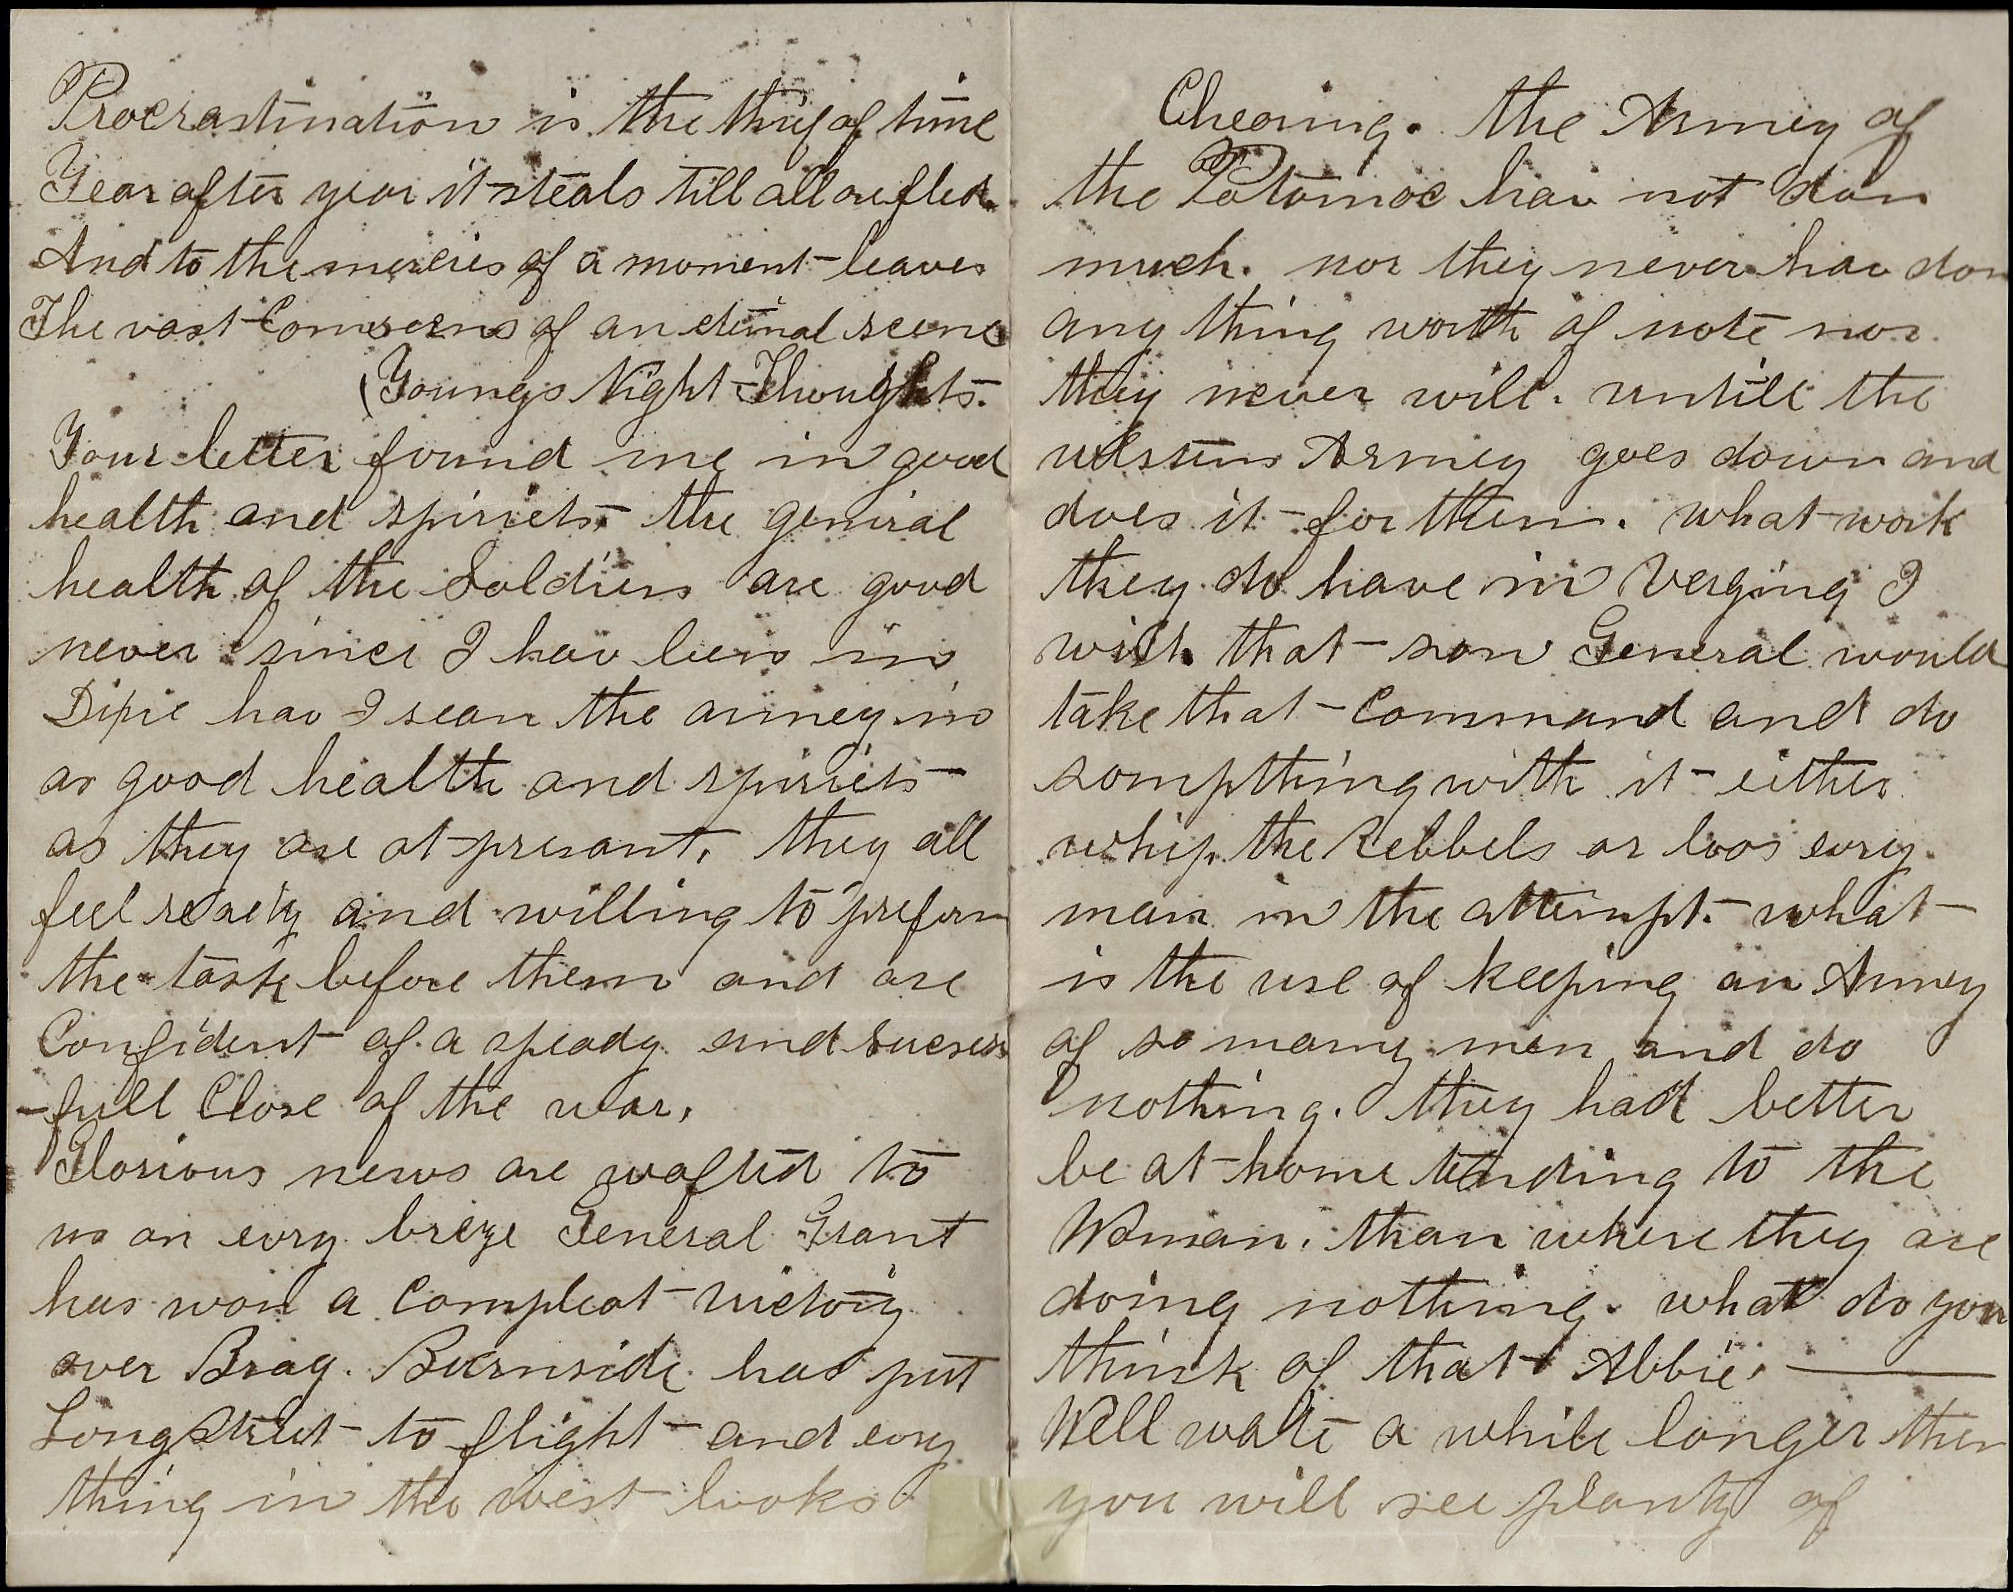 Procrastination is the thief of time
Year after year it steals till all are fled.
And to the mercies of a moment leaves
The vast Concerns of an eternal scene
(Youngs Night Thoughts.
Your letter found me in good
health and spiriets. the geniral
health of the Soldiers are good
never since I hav been in
Dixie hav I sean the armey in
as good health and spiriets
as they are at presant, they all
feel ready and willing to preform
the task before them and are
Confident of a speady and sucsess
-full Close of the war,
Glorious news are wafted to
us on evry breze General Grant
has won a Compleat victory
over Brag. Burnside has put
Longstreet to flight and evry
thing in the west looks
Chearing. the Armey of
the Potomac hav not don
much. nor they never hav don
any thing worth of note nor
they never will. untill the
western Armey goes down and
does it for them. what work
they do have in Verging I
wish that som General would
take that Command and do
sompthing with it either
whip the Rebbels or loos evry
man in the attempt. what
is the use of keeping an Armey
of so many men and do
nothing. they had better
be at home tending to the
Woman. than where they are
doing nothing. what do you
think of that Abbie.
Well waite a while longer then
you will see planty of